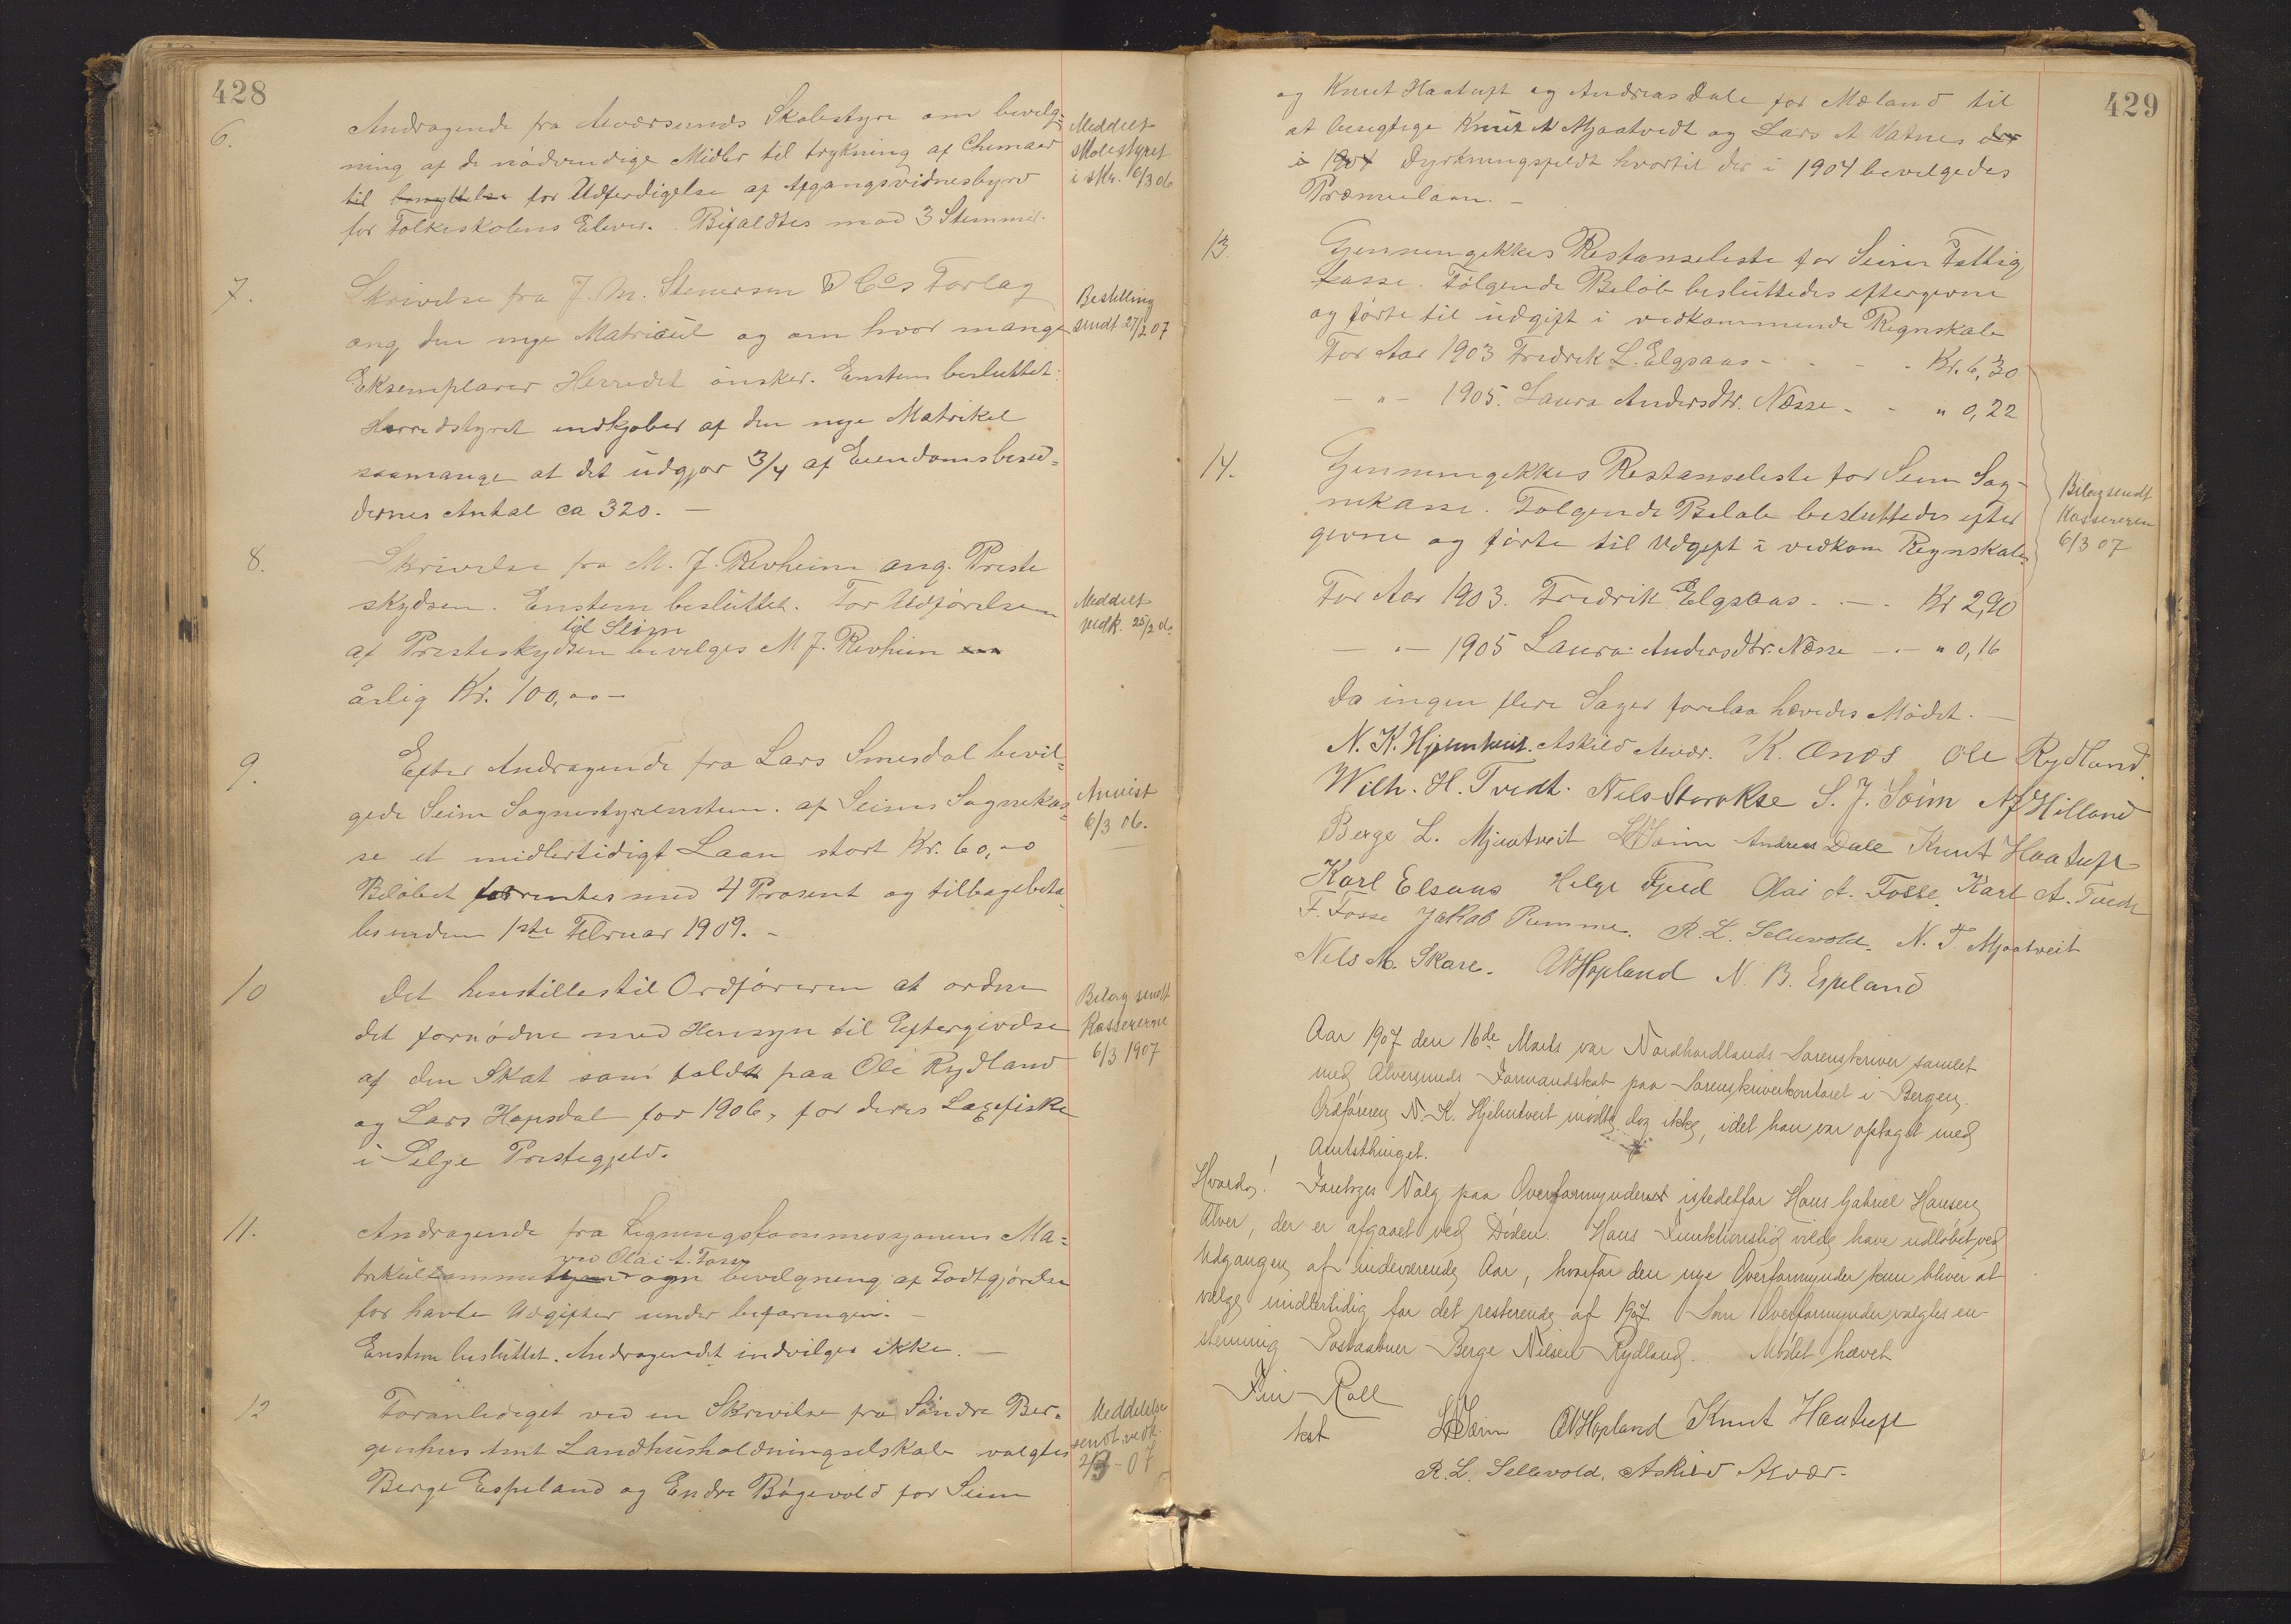 428
6. Andragende fra Alværsunds Skolestyre om bevilg=
ning af de nødvendige Midler til trykning af Chemaer
til benyttelse for Udferdigelse af Afgangsvidnesbyrd
for Folkeskolens Elever. Bifaldtes mod 3 Stemmer.
Meddelt
skolestyret
i skr. 6/3 06
7. Skrivelse fra J. M. Stenersen & Co's Forlag
ang den nye Matricul og om hvor mange
Eksemplarer Herredet ønsker. Enstem besluttet:
Herredstyret indkjøber af den nye Matrikel
saamange at det udgjør 3/4 af Eiendomsbesid=
dernes Antal ca 320. —
Bestilling
sendt 27/2 07
8. Skrivelse fra M. J. Revheim ang. Preste
skydsen. Enstem besluttet. For Udførelsen
til Seim
af Presteskydsen bevilges M J. Revheim
årlig Kr. 100,00 —
Meddelt
vedk. 25/2 06
9. Efter Andragende fra Lars Smesdal bevil=
gede Seim Sognestyre enstem. af Seims Sognekas=
se et midlertidigt Laan stort Kr. 60,00
Beløbet forrentes med 4 Prosent og tilbagebeta
les inden 1ste Februar 1909. -
Anvist
6/3 06.
10 Det henstilles til Ordføreren at ordne
det fornødne med Hensyn til Eftergivelse
af den Skat som faldt paa Ole Rydland
og Lars Hopsdal for 1906, for deres Laxefiske
i Selje Prestegjeld.
Bilag sendt
Kassererne
6/3 1907
11. Andragende fra Ligningskommissjonens Ma=
ved Olai A. Fosse
trikulkommissjon ogn bevilgning af Godtgjørelse
for havte Udgifter under befaringen. —
Enstem besluttet. Andragendet indvilges ikke. —
12 Foranlediget ved en Skrivelse fra Søndre Ber=
genhus Amt Landhusholdningselskab valgtes
Berge Espeland og Endre Bøgevold for Seim
Meddelelse
sendt vedk.
2/3 - 07
429
og Knut Haatuft og Andreas Dale for Mæland til
at besigtige Knut N Mjaatvedt og Lars A Vatnes der
i 1904 Dyrkningsfeldt hvortil der i 1904 bevilgedes
Præmielaan. —
13. Gjennemgikkes Restanseliste for Seim Fattig
kasse. Følgende Beløb besluttedes eftergivne
og førte til udgift i vedkommende Regnskab
For Aar 1903 Fredrik L. Elgsaas - - - Kr. 6,30
— " — 1905. Laura Andersdtr. Næsse - - " 0,22
14. Gjennemgikkes Restanseliste for Seim Sog-
nekasse. Følgende Beløb besluttedes efter
givne og førte til Udgift i vedkom Regnskab
Bilag sendt
Kassereren
6/3 07
For Aar 1903. Fredrik Elgsaas - — - Kr 2,90
— " — 1905 Laura Andersdtr. Næsse — - — " 0,16
Da ingen flere Sager forelaa hævedes Mødet. —
N. K. Hjelmtveit. Askild Alvær. K. Onæs Ole Rydland.
Wilh. H. Tvedt. Nils Storokse S. J. Søim N J Hilland
Berge L. Mjaatveit L Søim Andreas Dale Knut Haatuft
Karl Elsaas Helge Fyed Olai A. Fosse. Karl A. Tvedt
F. Fosse Jakob Rumme. R. L. Sellevold. N. T. Mjaatveit
Nils M. Skare. O N Hopland N. B. Espeland
Aar 1907 den 16de Marts var Nordhordlands Sorenskriver samlet
med Alversunds Formandskab paa Sorenskriverkontoret i Bergen.
Ordføreren N. K. Hjelmtveit mødte dog ikke, idet han var optaget med
Amtsthinget.
Hvorda! Foretoges Valg paa Overformynder istedetfor Hans Gabriel Hansen
Alver, der er afgaaet ved Døden. Hans Funktionstid vilde have udløbet ved
Udgangen af indeværende Aar, hvorfor den nye Overformynder kun bliver at
vælge midlertidig for det resterende af 1907. Som Overformynder valgtes en-
stemmig Postaabner Berge Nilsen Rydland. Mødet hævet
Fin Roll
kst L Søim O N Hopland Knut Haatuft
R. L. Sellevold. Askild Alvær.